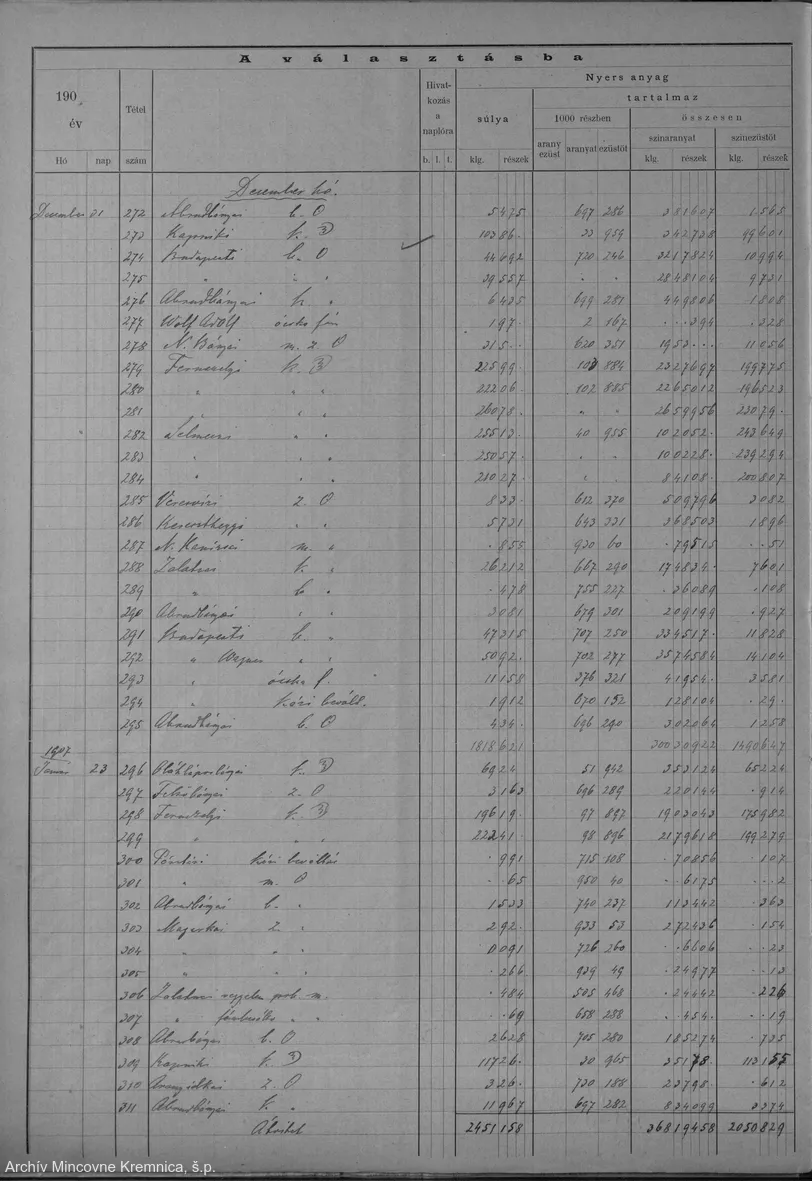 A választásba
190 év
Tétel szám
Hivatkozás a naplóra
Nyers anyag
súlya
tartalmaz
1000 részben
összesen
arany ezüst
aranyat
ezüstöt
színaranyat
színezüstöt
Hó nap
b. l. t.
klg. részek
klg. részek
klg. részek
December hó.
December 31 272 Abrudbányai b. O 5475 697 286 381607 1.565
273 Kapniki k. 10386 33 959 342738 99601
274 Budapesti b. O 44692 720 246 3217824 10994
275 " " " 39557 " " 2848104 9731
276 Abrudbányai k. " 6435 699 281 449806 1808
277 Wolf Adolf 197 2 167 394
278 N. Bányai m. z. O 315 620 351 1953 11056
279 Fernezelyi k. 22599 103 884 2327697 199775
280 " " " 22206 102 885 2265012 196523
281 26078 " " 2659956
282 " " 25513 40 955 102052 243649
283 " " " 25057 " " 100228 239294
284 " " " 21027 " " 84108 200807
285 z. O 833 612 370 509796 3082
286 " " 5731 643 331 368503 1896
287 N. Kanizsai m. " 855 930 60 79515 51
288 Zalatnai k. " 26212 667 290 174834 7601
289 " b. " 478 755 227 36089 108
290 Abrudbányai " " 3081 679 301 209199 927
291 Budapesti b. " 47315 707 250 334517 11828
292 " Wagner " 5092 702 277 3574584 14104
293 " 11158 376 321 41954 3581
294 " 1912 670 152 128104 29
295 Abrudbányai b. O 434 696 290 302064 1258
1818621 30030922 1490647
1907
23 296 Oláhláposbányai k. 6924 51 942 353124 65224
297 Felsőbányai z. O 3163 696 289 220144 914
298 Fernezelyi k. 19619 97 897 1903043 175982
299 " " 22241 98 896 2179618 199279
300 991 715 108 70856 107
301 " m. O 65 950 40 6175 2
302 Abrudbányai b. " 1533 740 237 113442 363
303 z. " 292 933 53 272436 154
304 " " " 0091 726 260 6606 23
305 " " " 266 939 49 24977 13
306 Zalatnai m. 484 505 468 24442 226
307 " 69 658 288 454 19
308 Abrudbányai b. O 2628 705 280 185274 735
309 Kapniki k. 11726 30 965 35178 113155
310 Aranyidkai z. O 326 730 188 23798 612
311 Abrudbányai k. " 11967 697 282 834099 3374
Átvitel 2451158 36819458 2050829
Archív Mincovne Kremnica, š.p.